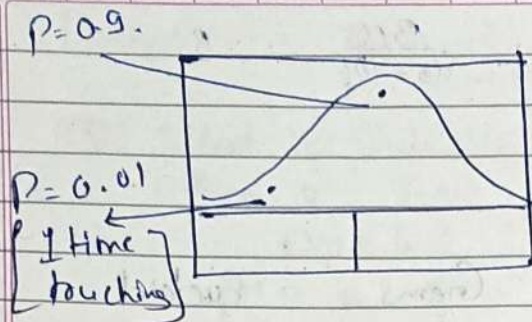 P= 0.9.
P= 0.01
[1 time
touching]